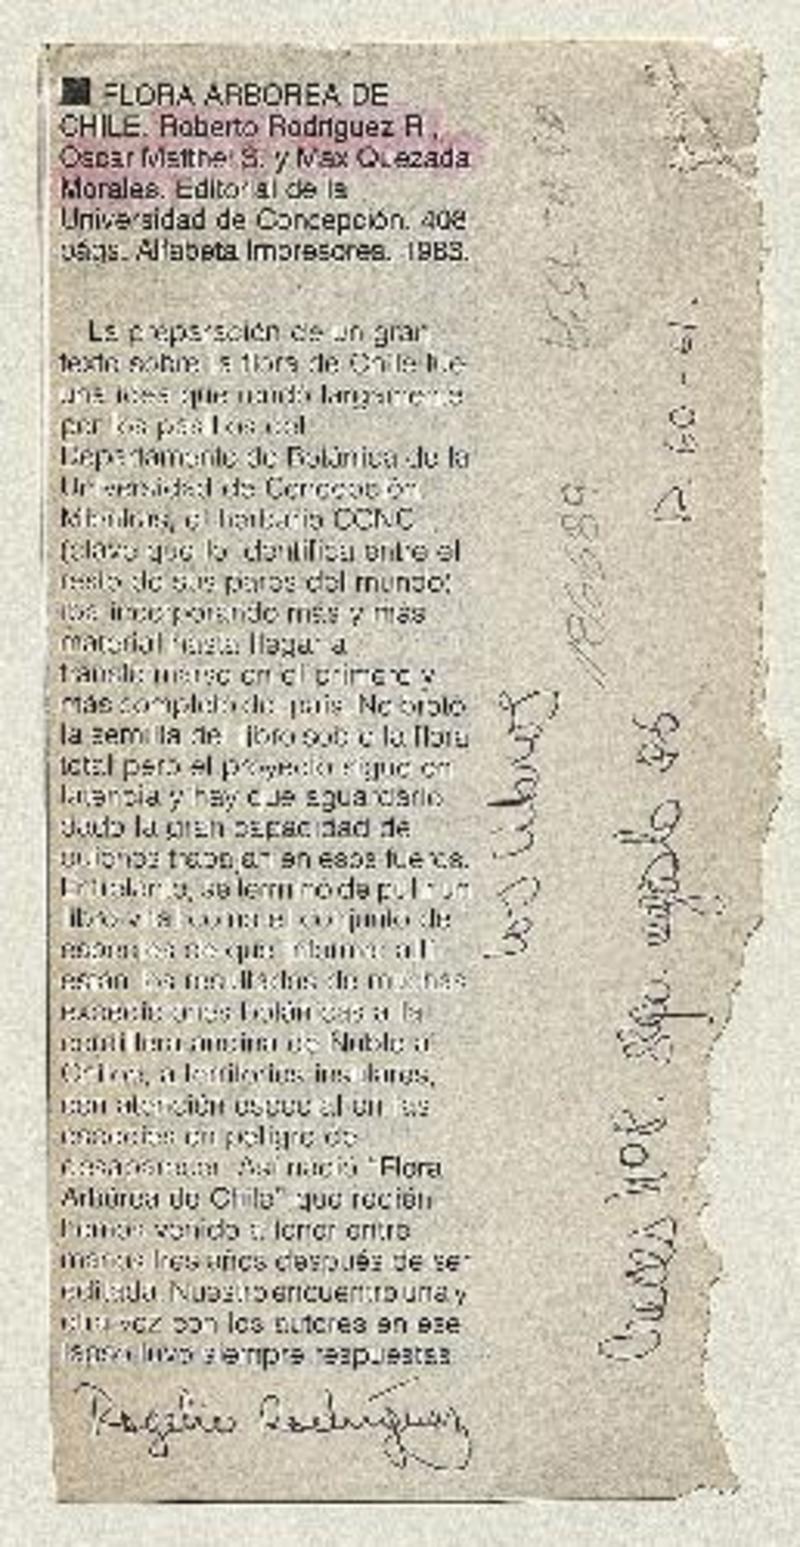 ■ FLORA ARBOREA DE
CHILE. Roberto Rodríguez R.,
Oscar Matthei S. y Max Quezada
Morales. Editorial de la
Universidad de Concepción. 408
págs. Alfabeta Impresores. 1983.
La preparación de un gran
texto sobre la flora de Chile fue
una idea que rondó largamente
por los pasillos del
Departamento de Botánica de la
Universidad de Concepción.
Mientras, el herbario CONC
(clave que lo identifica entre el
resto de sus pares del mundo)
iba incorporando más y más
material hasta llegar a
transformarse en el primero y
más completo del país. No brotó
la semilla del libro sobre la flora
total pero el proyecto sigue en
latencia y hay que aguardarlo
dado la gran capacidad de
quienes trabajan en esos fueros.
Entretanto, se terminó de pulir un
libro vital como el conjunto de
especies de que informa: allí
están los resultados de muchas
expediciones botánicas a la
cordillera andina de Ñuble a
Chiloé, a territorios insulares,
con atención especial en las
especies en peligro de
desaparecer. Así nació "Flora
Arbórea de Chile" que recién
hemos venido a tener entre
manos tres años después de ser
editada. Nuestro encuentro una y
otra vez con los autores en ese
lapso tuvo siempre respuestas
Rogelio Rodríguez
Los Libros
186689